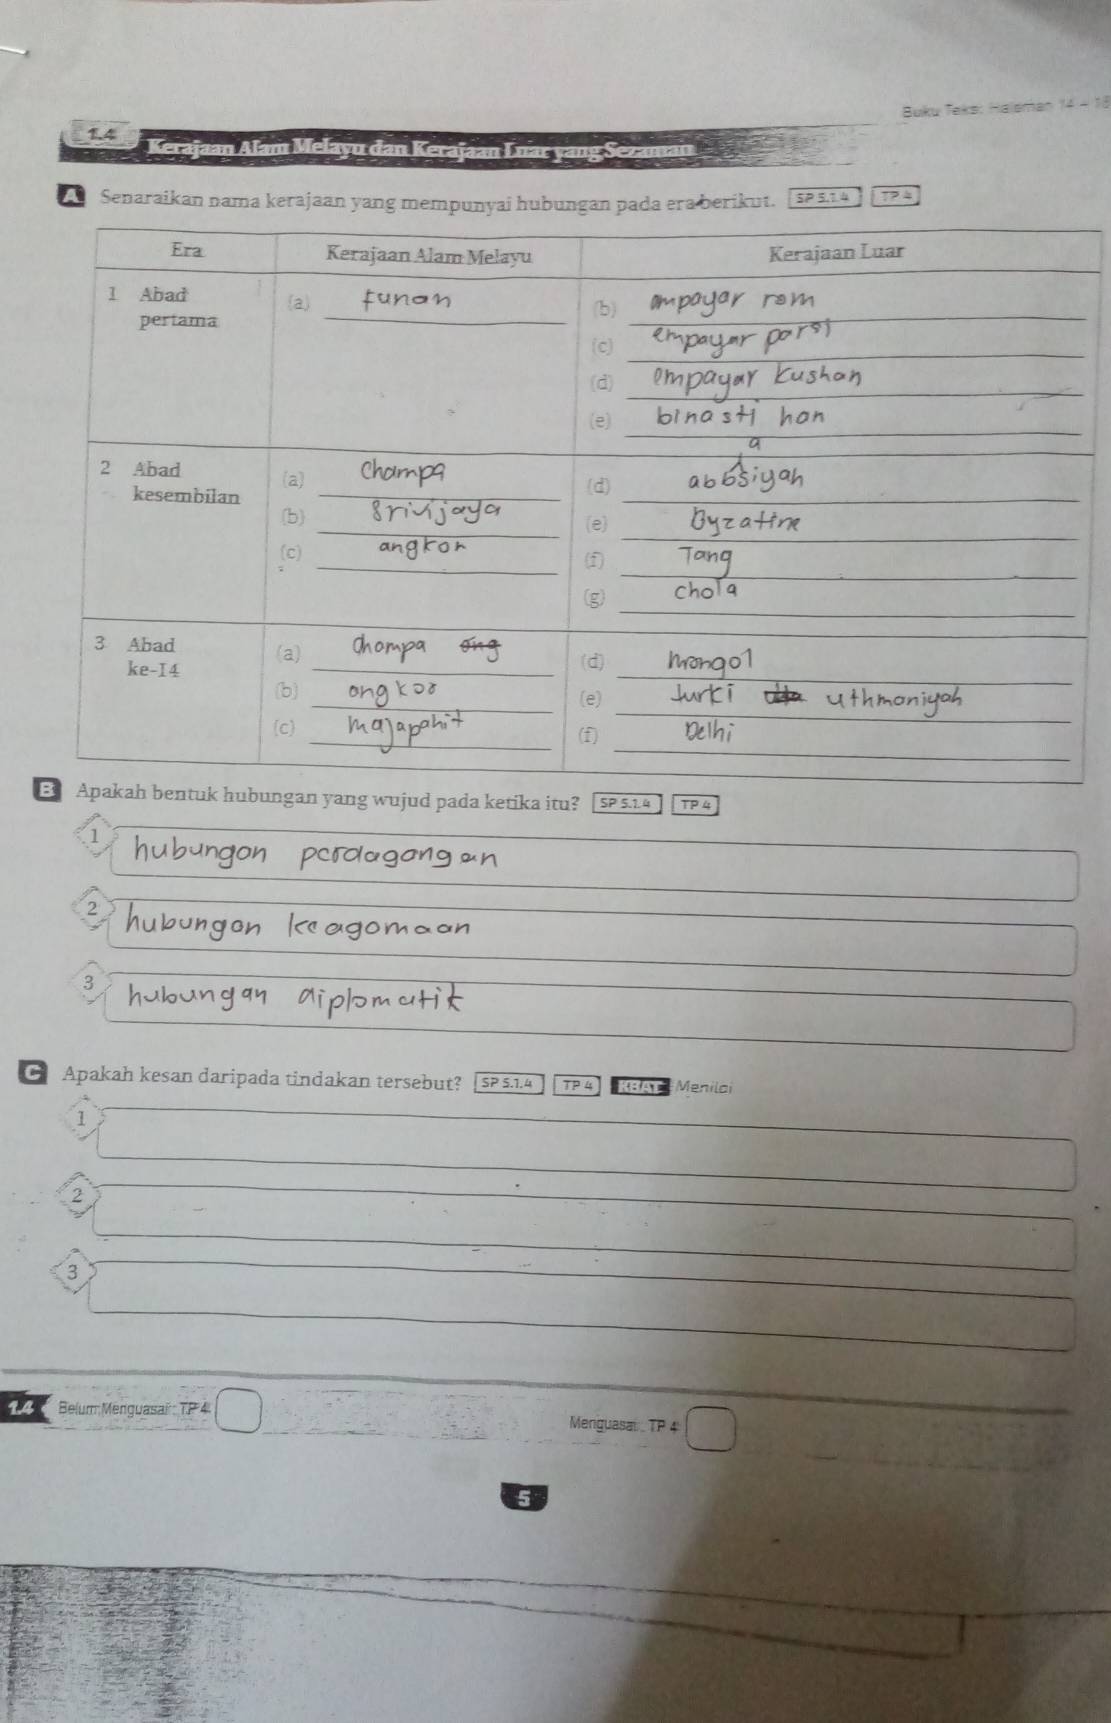 Buku Teks: Halaman 14 - 18
1.4 Kerajaan Alam Melayu dan Kerajaan Luar yang Sezaman
A Senaraikan nama kerajaan yang mempunyai hubungan pada era berikut. SP 5.1.4 TP 4
Era Kerajaan Alam Melayu Kerajaan Luar
1 Abad pertama
(a) funan
(b) empayar rom
(c) empayar parsi
(d) empayar kushan
(e) binasti han
2 Abad kesembilan
(a) Champa
(b) Srivijaya
(c) angkor
(d) abbasiyah
(e) Byzatine
(f) Tang
(g) chola
3 Abad ke-14
(a) Champa ang
(b) angkor
(c) majapahit
(d) mongol
(e) turki uthmaniyah
(f) Delhi
B Apakah bentuk hubungan yang wujud pada ketika itu? SP 5.1.4 TP 4
1 hubungan perdagangan
2 hubungan keagamaan
3 hubungan diplomatik
C Apakah kesan daripada tindakan tersebut? SP 5.1.4 TP 4 KBAT Menilai
1
2
3
1.4 Belum Menguasai: TP 4
Menguasai: TP 4
5